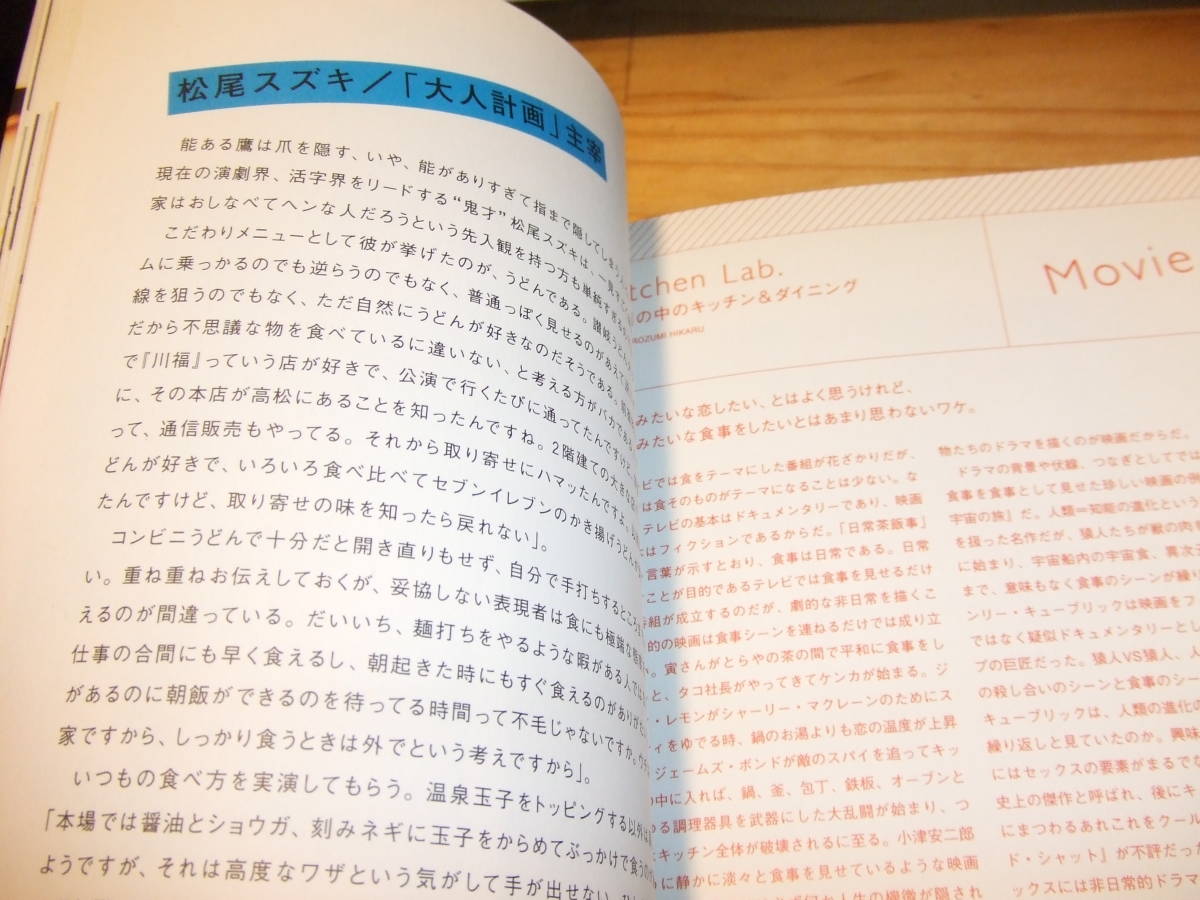 松尾スズキ／「大人計画」主宰
能ある鷹は爪を隠す、いや、能がありすぎて指まで隠してしまう
現在の演劇界、活字界をリードする“鬼才”松尾スズキは、一見す
家はおしなべてヘンな人だろうという先入観を持つ方も単純すぎるの
こだわりメニューとして彼が挙げたのが、うどんである。讃岐うどん
ムに乗っかるのでも逆らうのでもなく、普通っぽく見せるのがあえて
線を狙うのでもなく、ただ自然にうどんが好きなのだそうである。
だから不思議な物を食べているに違いない、と考える方がバカであ
で『川福』っていう店が好きで、公演で行くたびに通ってたんですけど
に、その本店が高松にあることを知ったんですね。2階建ての大きな
って、通信販売もやってる。それから取り寄せにハマッたんですよ。
どんが好きで、いろいろ食べ比べてセブンイレブンのかき揚げうどん
たんですけど、取り寄せの味を知ったら戻れない」。
コンビニうどんで十分だと開き直りもせず、自分で手打ちするところ
い。重ね重ねお伝えしておくが、妥協しない表現者は食にも極端な
えるのが間違っている。だいいち、麺打ちをやるような暇がある人では
仕事の合間にも早く食えるし、朝起きた時にもすぐ食えるのがありが
があるのに朝飯ができるのを待ってる時間って不毛じゃないですか。ウチ
家ですから、しっかり食うときは外でという考えですから」。
いつもの食べ方を実演してもらう。温泉玉子をトッピングする以外は
「本場では醤油とショウガ、刻みネギに玉子をからめてぶっかけで食うの
ようですが、それは高度なワザという気がして手が出せない。
tchen Lab.
の中のキッチン＆ダイニング
ROZUMI HIKARU
Movie
みたいな恋したい、とはよく思うけれど、
みたいな食事をしたいとはあまり思わないワケ。
ビでは食をテーマにした番組が花ざかりだが、
は食そのものがテーマになることは少ない。な
テレビの基本はドキュメンタリーであり、映画
はフィクションであるからだ。「日常茶飯事」
言葉が示すとおり、食事は日常である。日常
ことが目的であるテレビでは食事を見せるだけ
組が成立するのだが、劇的な非日常を描くこ
的の映画は食事シーンを連ねるだけでは成り立
。寅さんがとらやの茶の間で平和に食事をし
と、タコ社長がやってきてケンカが始まる。ジ
・レモンがシャーリー・マクレーンのためにス
ィをゆでる時、鍋のお湯よりも恋の温度が上昇
ジェームズ・ボンドが敵のスパイを追ってキッ
の中に入れば、鍋、釜、包丁、鉄板、オーブンと
る調理器具を武器にした大乱闘が始まり、つ
キッチン全体が破壊されるに至る。小津安二郎
に静かに淡々と食事を見せているような映画
物たちのドラマを描くのが映画だからだ。
ドラマの背景や伏線、つなぎとしてでは
食事を食事として見せた珍しい映画の例
宇宙の旅』だ。人類＝知能の進化という
を扱った名作だが、猿人たちが獣の肉
に始まり、宇宙船内の宇宙食、異次
まで、意味もなく食事のシーンが繰り
ンリー・キューブリックは映画をフ
ではなく疑似ドキュメンタリーとし
プの巨匠だった。猿人VS猿人、人
の殺し合いのシーンと食事のシー
キューブリックは、人類の進化の
繰り返しと見ていたのか。興味
にはセックスの要素がまるでな
史上の傑作と呼ばれ、後にキ
にまつわるあれこれをクール
ド・シャット』が不評だった
ックスには非日常的ドラマ